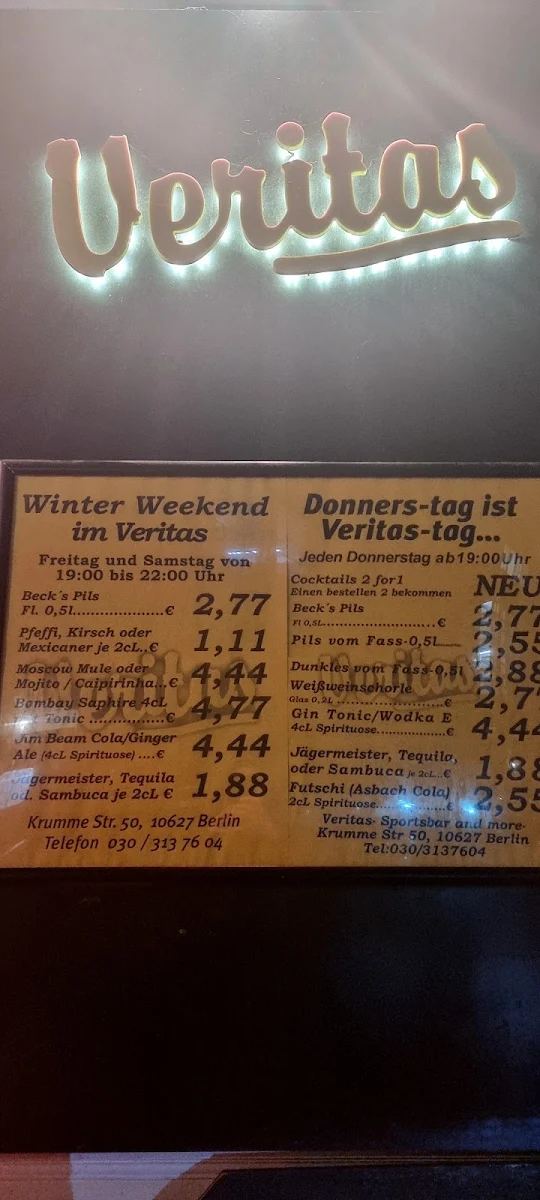 Veritas
Winter Weekend
im Veritas
Freitag und Samstag von
19:00 bis 22:00 Uhr
Beck´s Pils
Fl. 0,5l....................€ 2,77
Pfeffi, Kirsch oder
Mexicaner je 2cL..€ 1,11
Moscow Mule oder
Mojito / Caipirinha...€ 4,44
Bombay Saphire 4cL
Tonic ..............€ 4,77
Jim Beam Cola/Ginger
Ale (4cL Spirituose) ....€ 4,44
Jägermeister, Tequila
od. Sambuca je 2cL € 1,88
Krumme Str. 50, 10627 Berlin
Telefon 030 / 313 76 04
Donners-tag ist
Veritas-tag...
Jeden Donnerstag ab 19:00 Uhr
Cocktails 2 for 1
Einen bestellen 2 bekommen NEU
Beck´s Pils
Fl 0,5L............................€ 2,77
Pils vom Fass-0,5L 2,55
Dunkles vom Fass-0,5l 2,88
Weißweinschorle
Glas 0,2L.......................€ 2,7
Gin Tonic/Wodka E
4cL Spirituose.................€ 4,44
Jägermeister, Tequila,
oder Sambuca je 2cL..€ 1,88
Futschi (Asbach Cola)
2cL Spirituose.................€ 2,55
Veritas- Sportsbar and more-
Krumme Str 50, 10627 Berlin
Tel:030/3137604